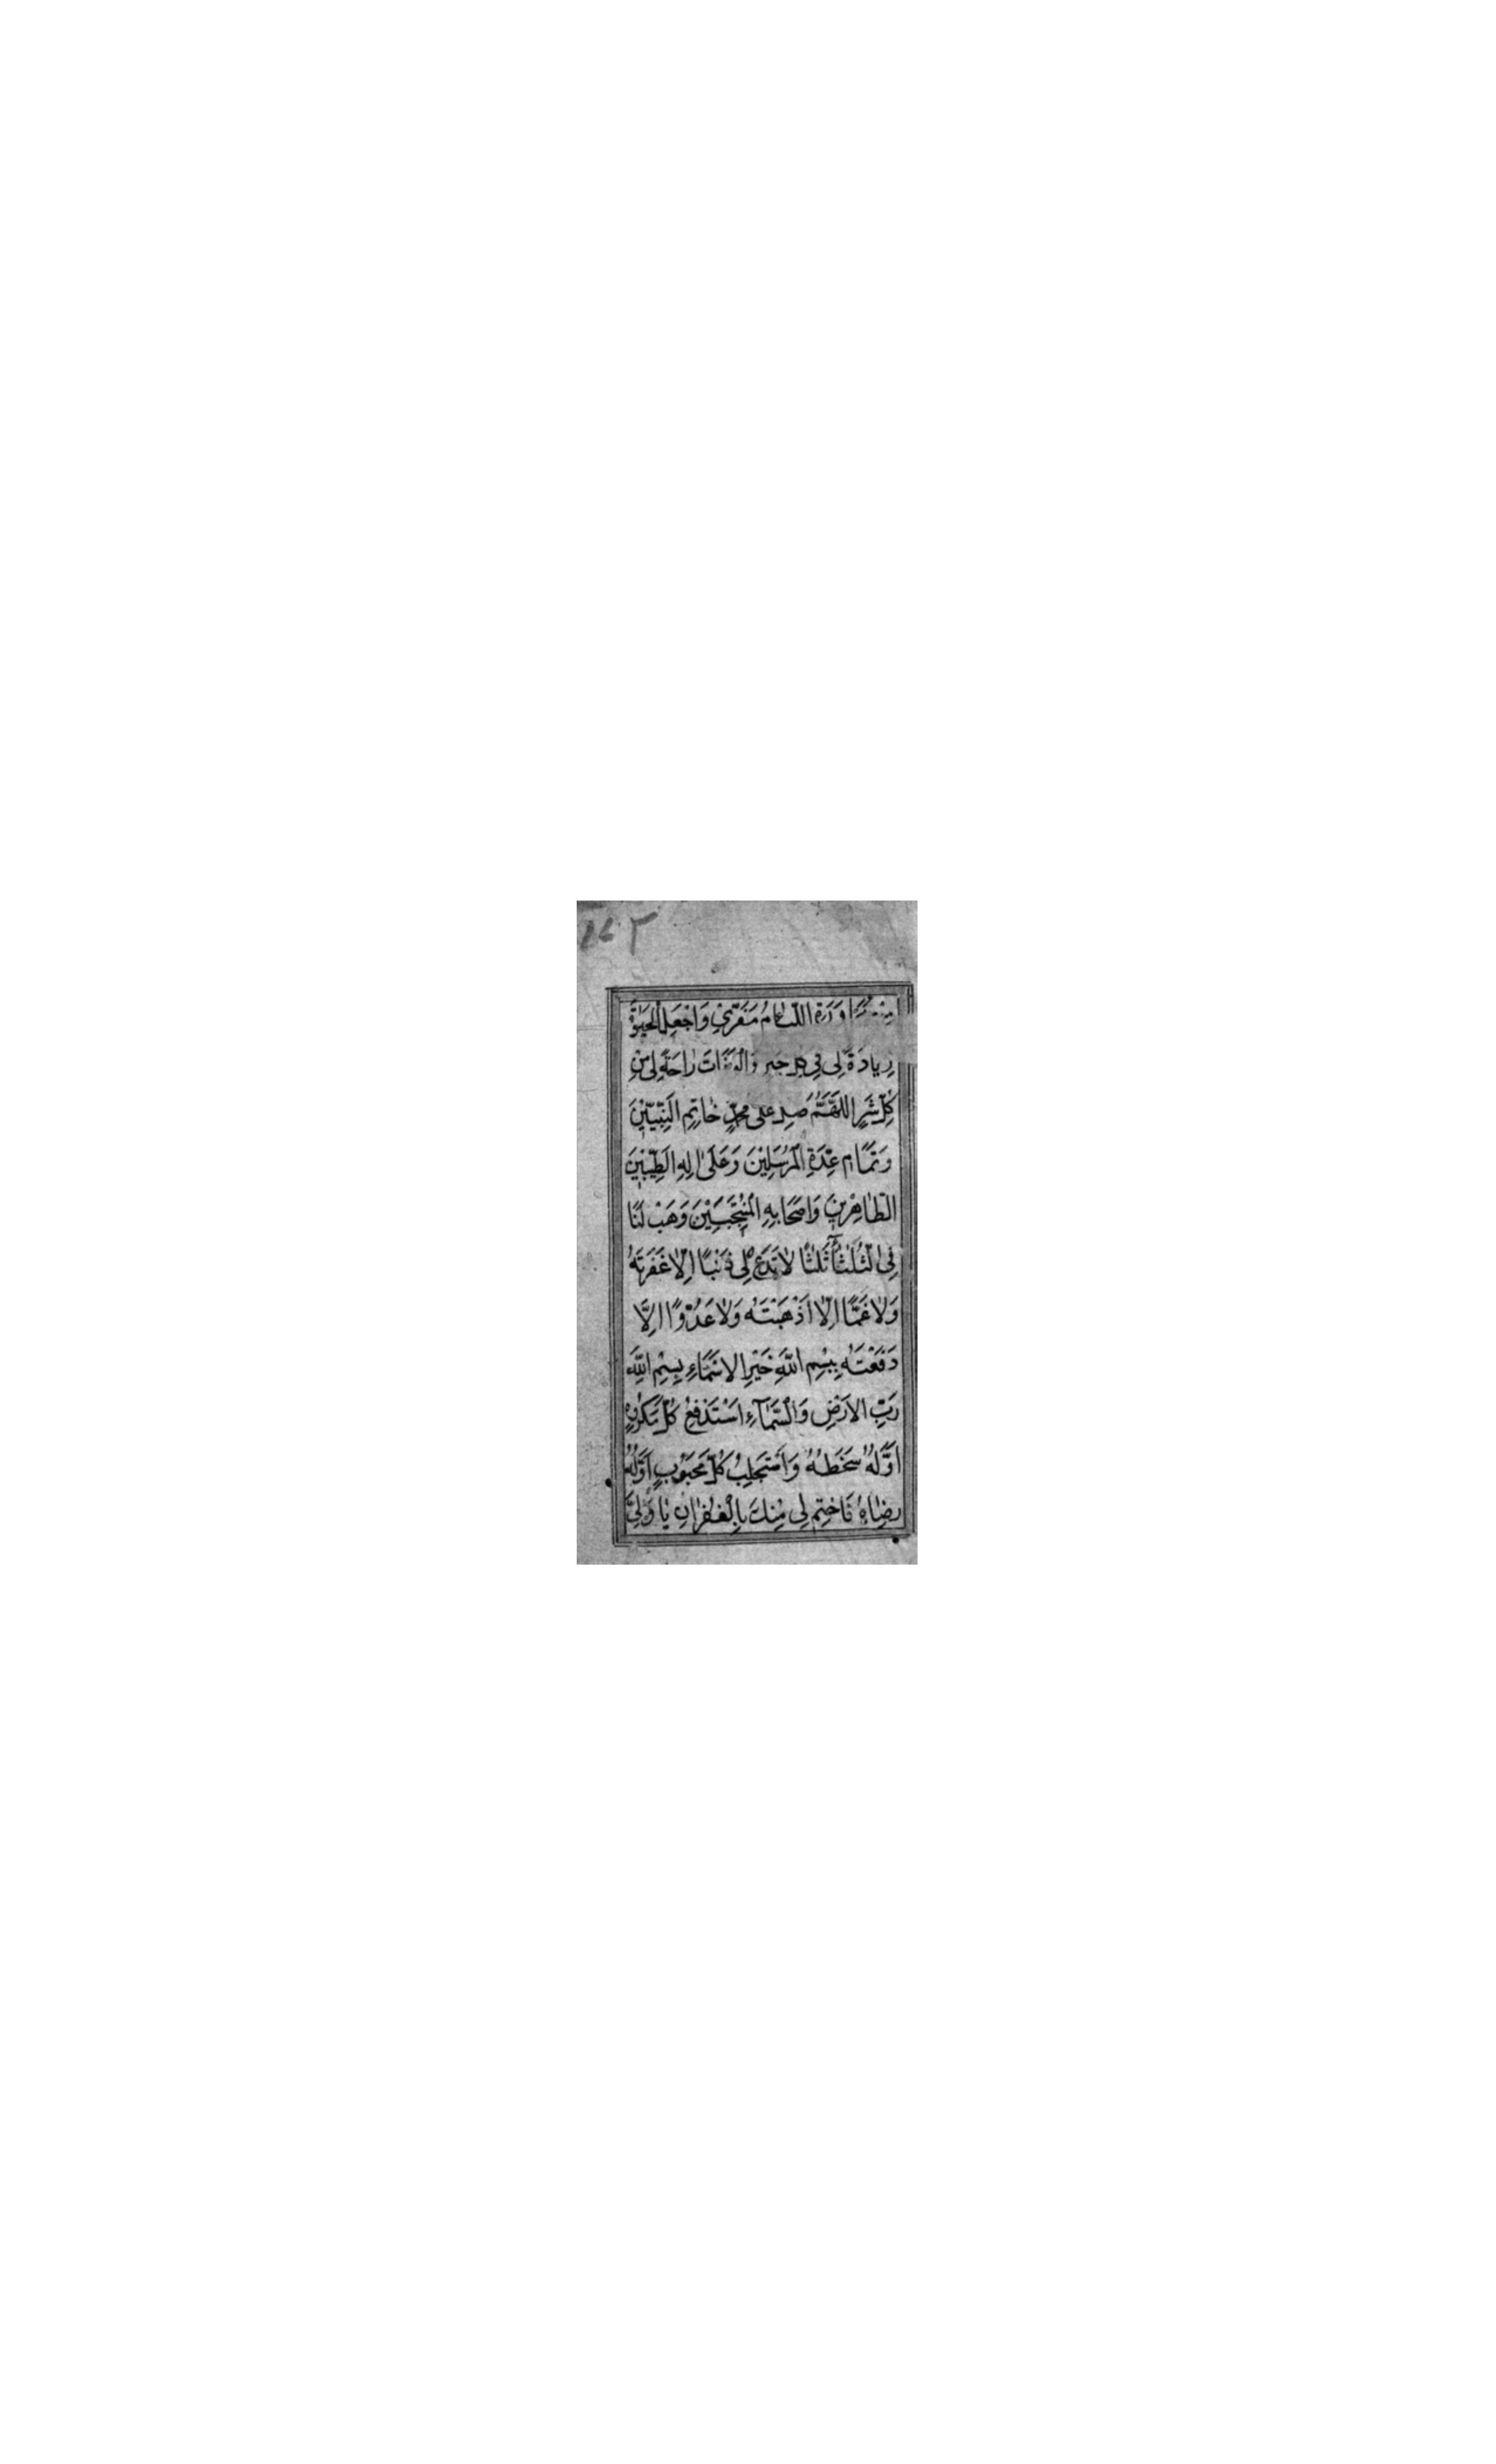 اللئام مَفَرّي وَاجْعَلِ الْحَيٰوةَ
زِيادَةً لي في كل خير وَالْوَفَاتَ رٰاحَةً لي مِنْ
كُلِّ شَرٍ اللّهُمَّ صَلِ عَلى محمّدٍ خٰاتِمِ النَّبِيّيْنَ
وَتَمَامِ عِدَةِ الْمُرْسَلِيْنَ وَعَلىٰ اٰلِهِ الطَّيِّبيْنَ
الطّٰاهِرينَ وَاَصحَابِهِ الْمُنْتَجَبيْنَ وَهَبْ لَنَا
فِي الثُلٰثٰآءِ ثَلٰثًا لاٰتَدَعْ لي ذَنْبًا اِلّاٰ غَفَرْتَهُ
وَلاٰ غَمًّا اِلّاٰ اَذْهَبْتَهُ وَلاٰ عَدُوًّا اِلَّا
دَفَعْتَهُ بِبِسْمِ اللّهِ خَيْرِ الاَسْمَاءِ بِسِمِ اللّهِ
رَبِّ الاَرْضِ وَالسَّمٰآءِ اَسْتَدْفِعُ كُلَّ مَكرُوْهٍ
اَوَّلُهُ سَخَطُهُ وَاَسْتَجلِبُ كُلَّ مَحبُوْبٍ اَوَّلُهُ
رِضٰاهُ فَاخْتِمْ لي مِنْكَ بِالْغُفْرٰانِ يٰا وَلِيَّ